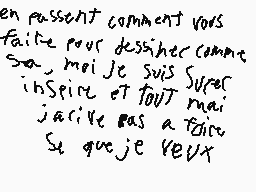 en passent comment vous
faite pour dessiner comme
sa, moi je suis super
inspire et tout mai
j arive pas a faire
se que je veux